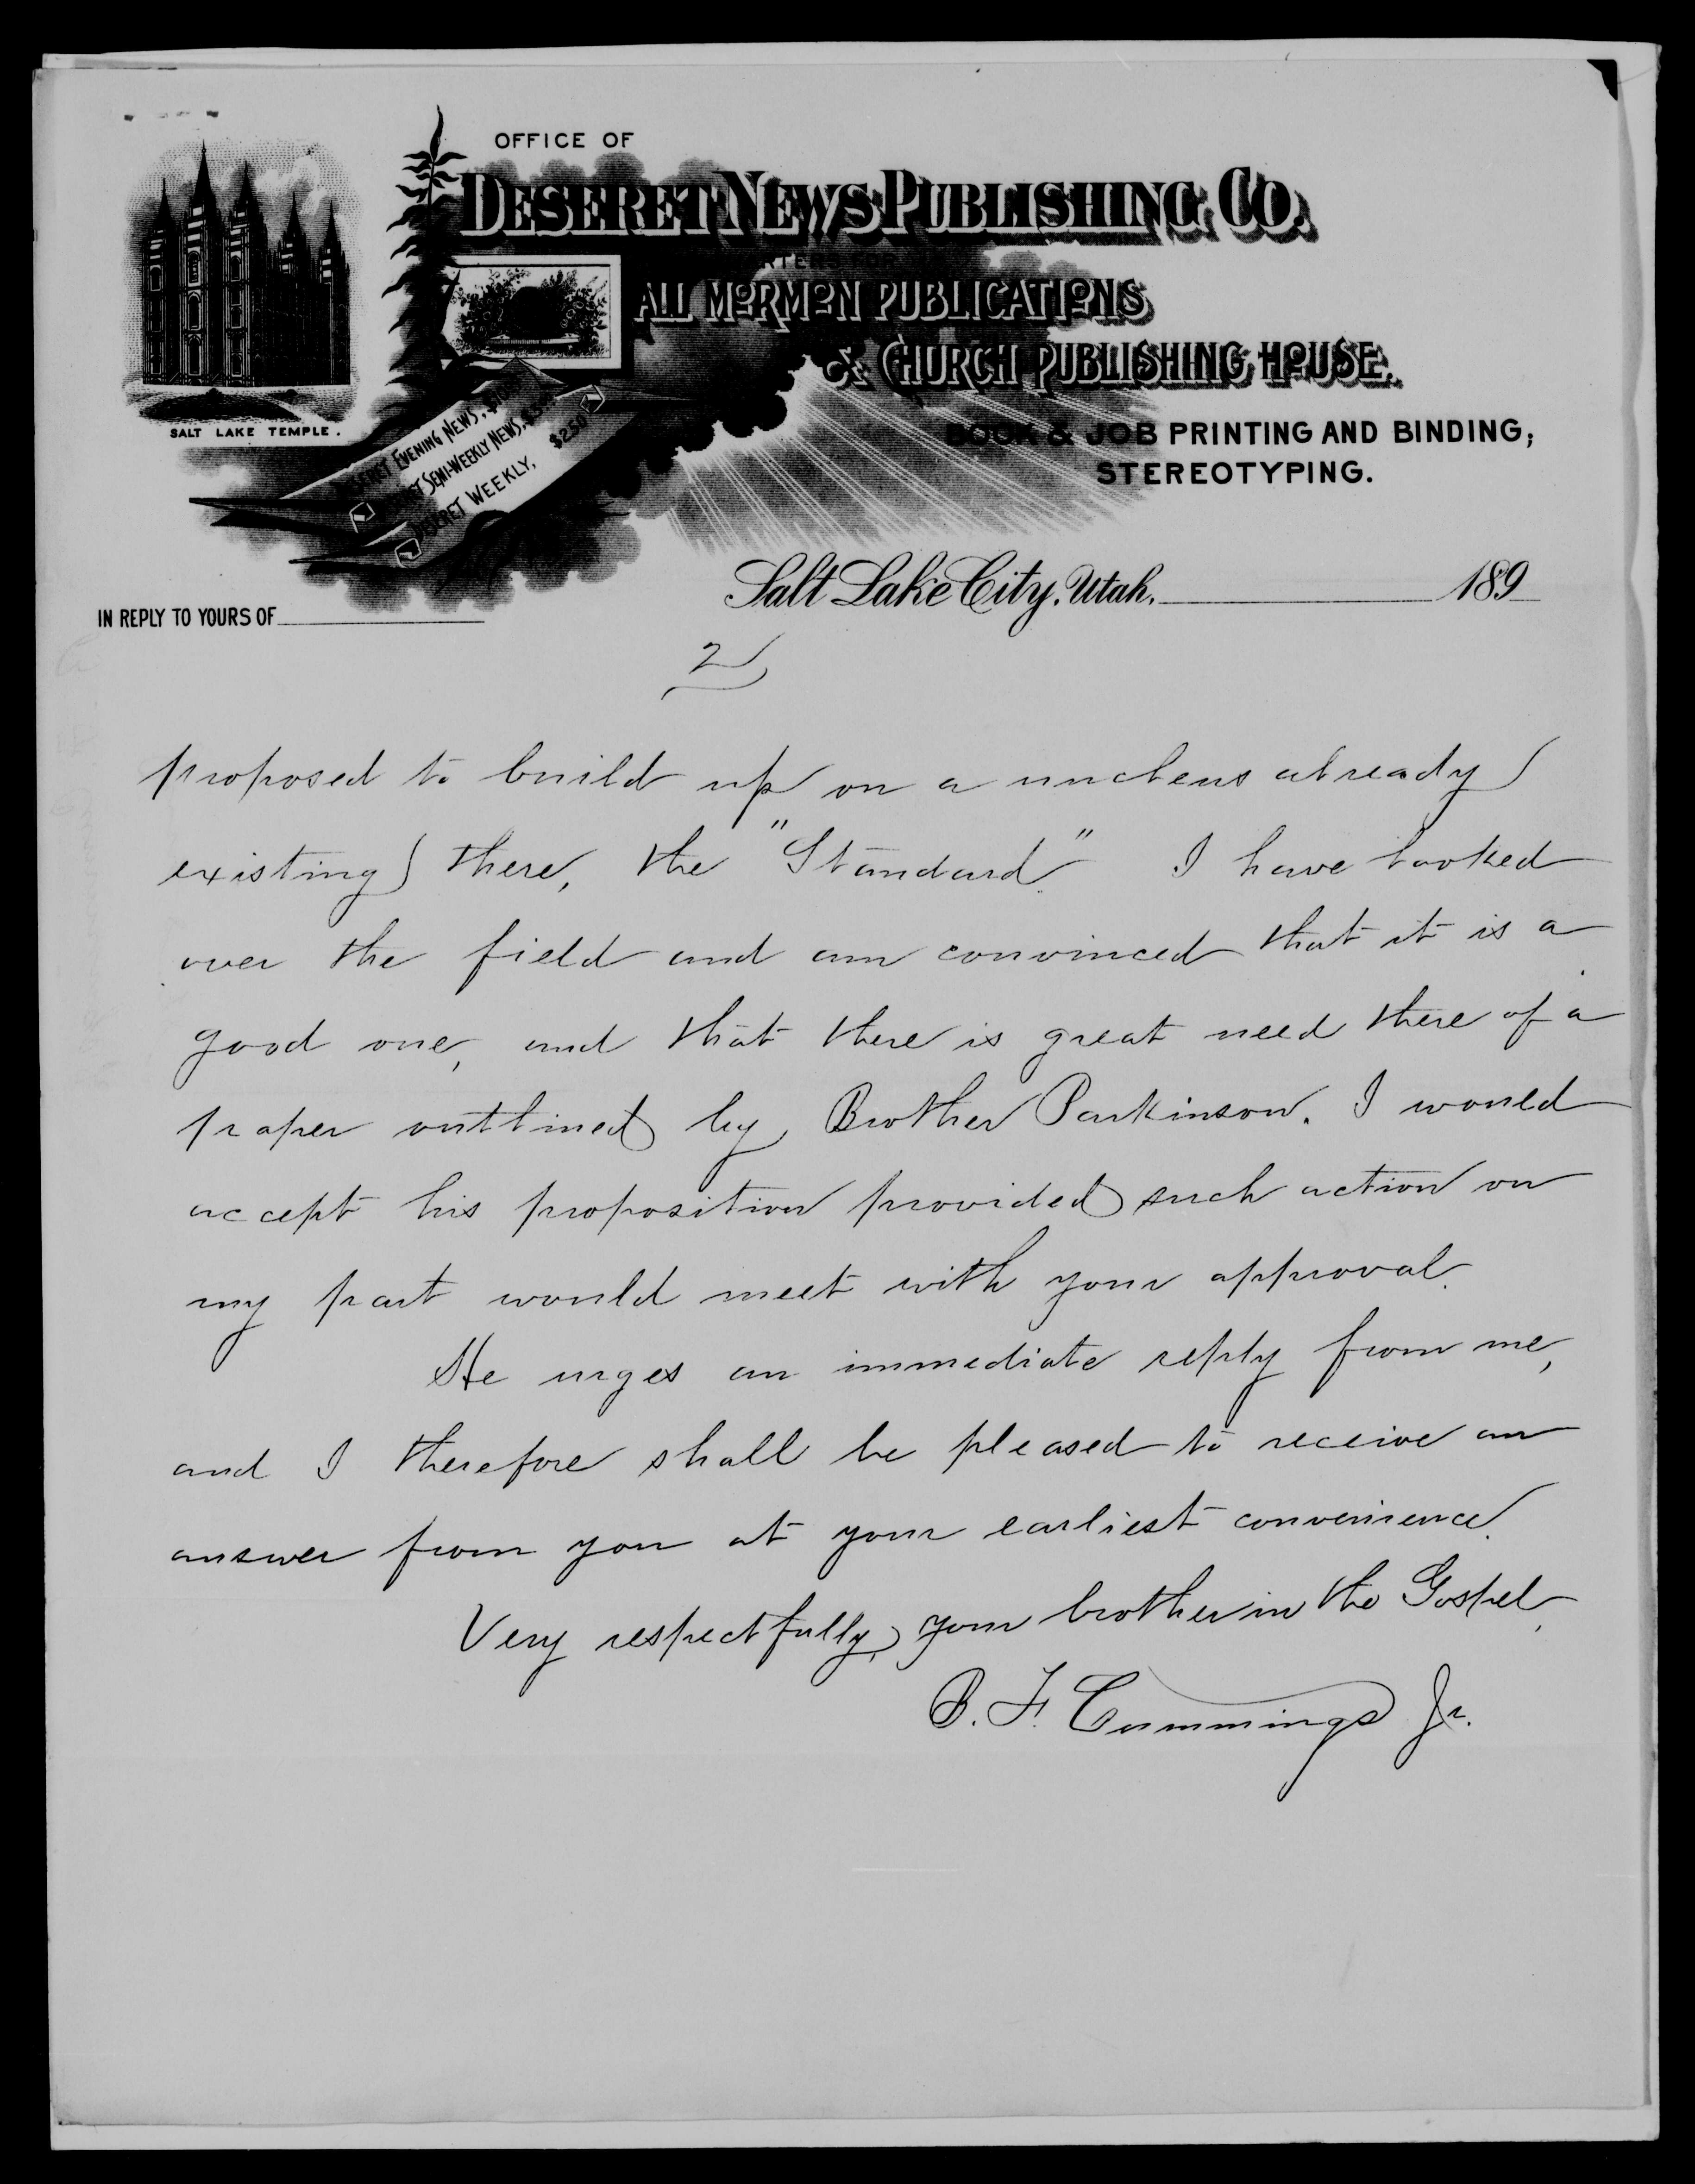 OFFICE OF
DESERET NEWS PUBLISHING CO.
ALL MORMON PUBLICATIONS
& CHURCH PUBLISHING HOUSE.
BOOK & JOB PRINTING AND BINDING,
STEREOTYPING.
SALT LAKE TEMPLE.
EVENING NEWS,
SEMI-WEEKLY NEWS,
DESERET WEEKLY, $2.50
Salt Lake City, Utah. 189
IN REPLY TO YOURS OF
2
proposed to build up on a nucleus already
existing there, the "Standard." I have looked
over the field and am convinced that it is a
good one, and that there is great need there of a
paper outlined by Brother Parkinson. I would
accept his proposition provided such action on
my part would meet with your approval.
He urges an immediate reply from me,
and I therefore shall be pleased to receive an
answer from you at your earliest convenience.
Very respectfully, your brother in the Gospel,
B. F. Cummings Jr.